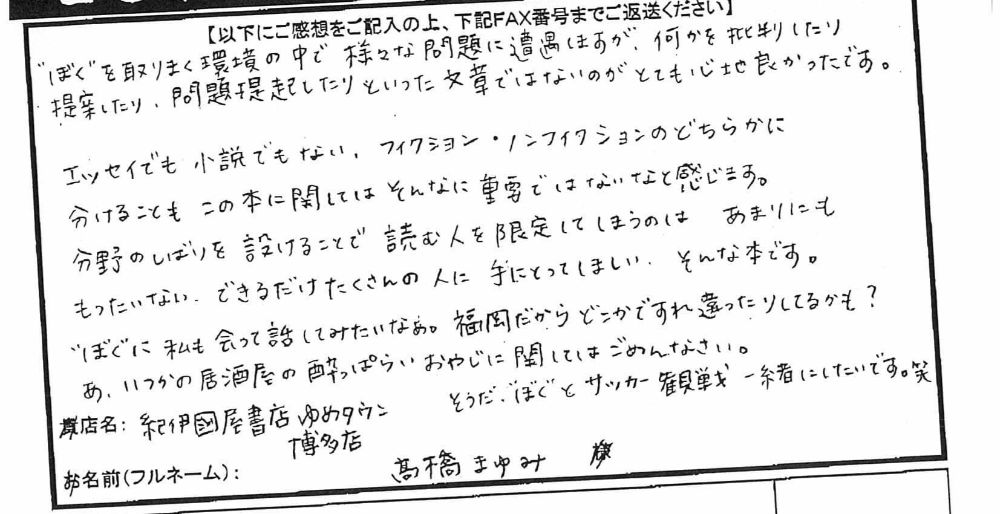 【以下にご感想をご記入の上、下記FAX番号までご返送ください】
"ぼく"を取りまく環境の中で 様々な問題に遭遇しますが、何かを批判したり
提案したり、問題提起したりといった文章ではないのがとても心地良かったです。
エッセイでも小説でもない、フィクション・ノンフィクションのどちらかに
分けることも この本に関してはそんなに重要ではないなと感じます。
分野のしばりを設けることで 読む人を限定してしまうのは あまりにも
もったいない、できるだけたくさんの人に 手にとってほしい、そんな本です。
"ぼく"に私も会って話してみたいなぁ。福岡だからどこかですれ違ったりしてるかも?
あ、いつかの居酒屋の酔っぱらいおやじに関してはごめんなさい。
そうだ、"ぼく"とサッカー観戦一緒にしたいです。笑
貴店名: 紀伊國屋書店 ゆめタウン
博多店
お名前(フルネーム): 髙橋まゆみ 様